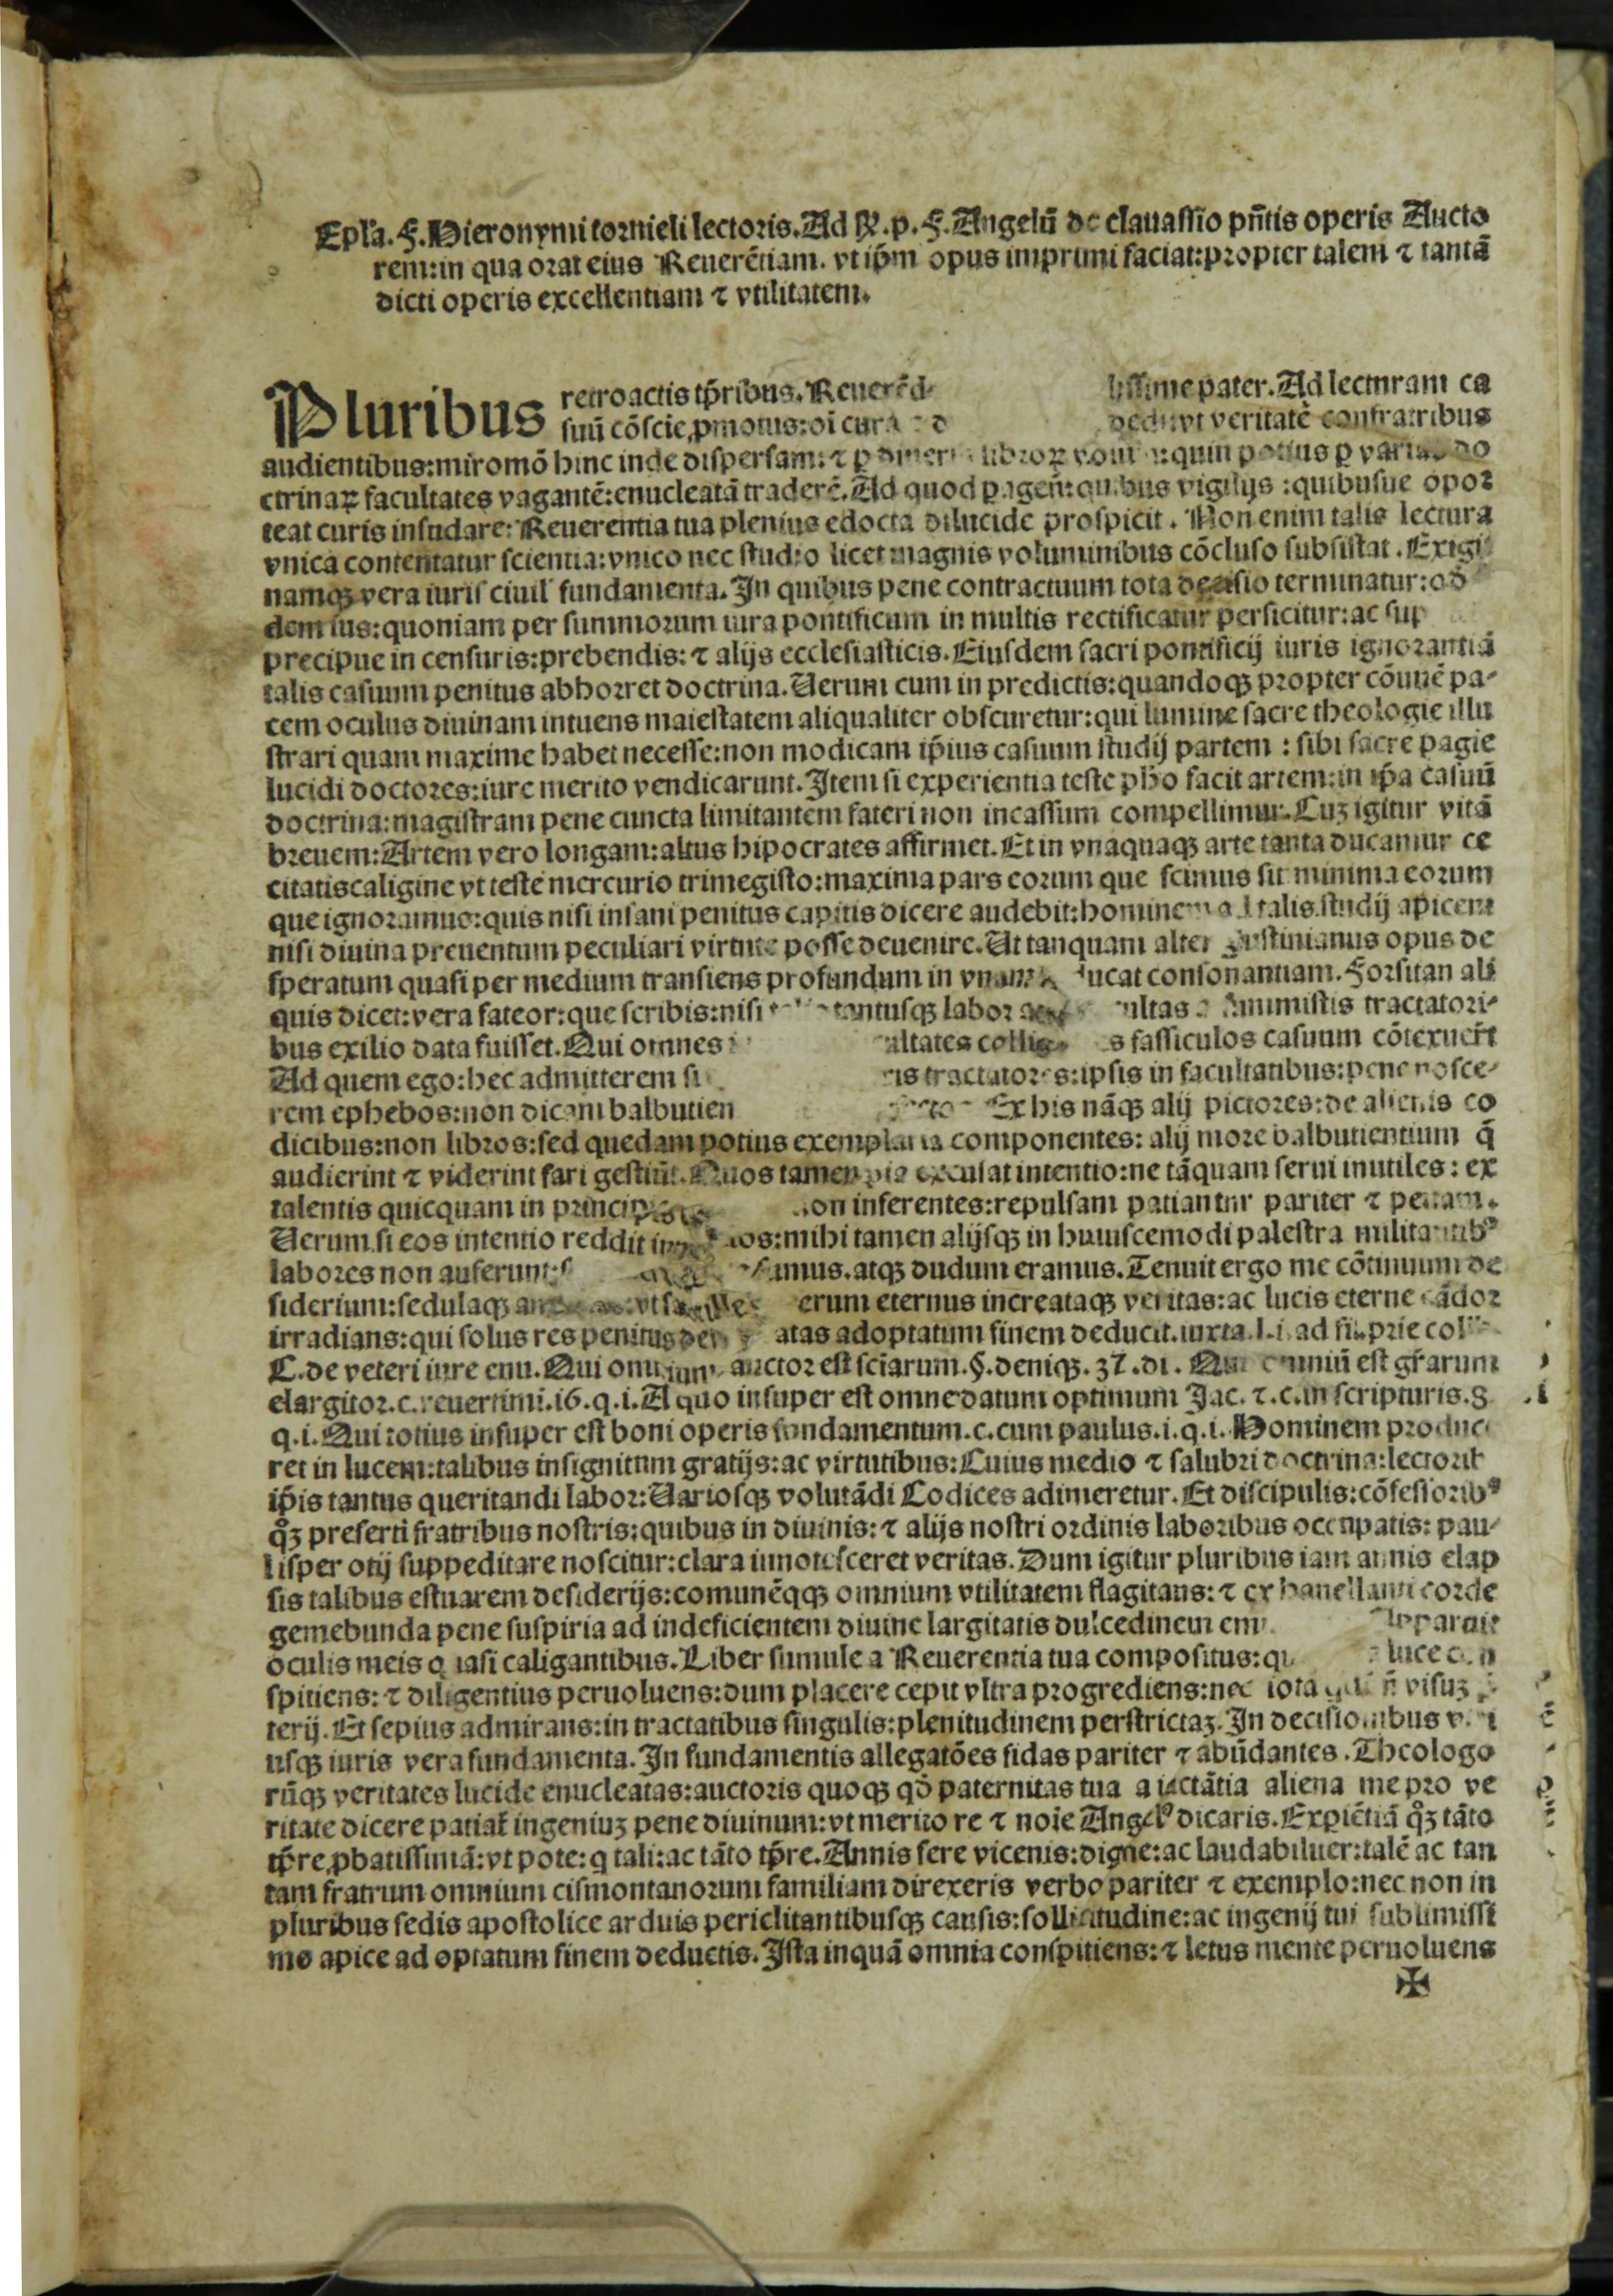 Epl̃a. F. Hieronymi tornieli lectoris. Ad R. p. F. Angelũ de clauassio pñtis operis Aucto
rem: in qua orat eius Reuerẽtiam. vt ip̃m opus imprimi faciat: propter talem ⁊ tantã
dicti operis excellentiam ⁊ vtilitatem.
Pluribus retroactis tp̃ribus. pater. Ad lecturam ca
suũ cõscie, ꝓmotus: oĩ cura vt veritatẽ confratribus
audientibus: miromõ hinc inde dispersam: ⁊ ꝑ quin potius ꝑ varias do
ctrinaꝝ facultates vagantẽ: enucleatã traderẽ. Ad quod ꝑagen̄: quibus vigilijs: quibusue opor
teat curis insudare: Reuerentia tua plenius edocta dilucide prospicit. Non enim talis lectura
vnica contentatur scientia: vnico nec studio licet magnis voluminibus cõcluso subsistat. Exigit
namqꝫ vera iuris ciuil' fundamenta. In quibus pene contractuum tota decisio terminatur:
dem ius: quoniam per summorum iura pontificum in multis rectificatur perficitur: ac
precipue in censuris: prebendis: ⁊ alijs ecclesiasticis. Eiusdem sacri pontificij iuris ignorantiã
talis casuum penitus abhorret doctrina. Uerum cum in predictis: quandoqꝫ propter cõmunẽ pa-
cem oculus diuinam intuens maiestatem aliqualiter obscuretur: qui lumine sacre theologie illu
strari quam maxime habet necesse: non modicam ip̃ius casuum studij partem: sibi sacre pagie
lucidi doctores: iure merito vendicarunt. Item si experientia teste ph̃o facit artem: in ip̃a casuũ
doctrina: magistram pene cuncta limitantem fateri non incassum compellimur. Cuꝫ igitur vitã
breuem: Artem vero longam: altus hipocrates affirmet. Et in vnaquaqꝫ arte tanta ducamur ce
citatis caligine vt teste mercurio trimegisto: maxima pars eorum que scimus sit minima eorum
que ignoramus: quis nisi insani penitus capitis dicere audebit: hominem ad talis studij apicem
nisi diuina preuentum peculiari virtute posse deuenire. Ut tanquam alter Iustinianus opus de
speratum quasi per medium transiens profundum in vnam ducat consonantiam. Forsitan ali
quis dicet: vera fateor: que scribis: nisi tantusqꝫ labor summistis tractatori-
bus exilio data fuisset. Qui omnes facultates fassiculos casuum cõtexuer̃t
Ad quem ego: hec admitterem si tractatores: ipsis in facultatibus: pene nosce-
rem ephebos: non dicam balbutien Ex his nãqꝫ alij pictores: de alienis co
dicibus: non libros: sed quedam potius exemplaria componentes: alij more balbutientium q̃
audierint ⁊ viderint fari gestiũt. Quos tamen pia excusat intentio: ne tãquam serui inutiles: ex
talentis quicquam in non inferentes: repulsam patiantur pariter ⁊ penam.
Uerum si eos intentio reddit mihi tamen alijsqꝫ in huiuscemodi palestra militantibꝰ
labores non auferunt: atqꝫ dudum eramus. Tenuit ergo me cõtinuum de
siderium: sedulaqꝫ vt erum eternus increataqꝫ veritas: ac lucis eterne cãdor
irradians: qui solus res penitus adoptatum finem deducit. iuxta. l. i. ad
C. de veteri iure enu. Qui omnium auctor est sciarum. §. deniqꝫ. 37. di. Qui omniũ est gr̃arum
elargitor. c. reuertimi. 16. q. i. A quo insuper est omne datum optimum Jac. ⁊. c. in scripturis. 8
q. i. Qui totius insuper est boni operis fundamentum. c. cum paulus. i. q. i. Hominem produce
ret in lucem: talibus insignitum gratijs: ac virtutibus: Cuius medio ⁊ salubri doctrina: lectorib
ip̃is tantus queritandi labor: Uariosqꝫ volutãdi Codices adimeretur. Et discipulis: cõfessoribꝰ
qꝫ preserti fratribus nostris: quibus in diuinis: ⁊ alijs nostri ordinis laboribus occupatis: pau-
lisper otij suppeditare noscitur: clara innotesceret veritas. Dum igitur pluribus iam annis elap
sis talibus estuarem desiderijs: comunẽqqꝫ omnium vtilitatem flagitans: ⁊ ex hanellanti corde
gemebunda pene suspiria ad indeficientem diuine largitatis dulcedinem
oculis meis quasi caligantibus. Liber sumule a Reuerentia tua compositus: luce
spitiens: ⁊ diligentius peruoluens: dum placere cepit vltra progrediens: nec iota visuꝫ
terij. Et sepius admirans: in tractatibus singulis: plenitudinem perstrictaꝫ. In decisionibus
usqꝫ iuris vera fundamenta. In fundamentis allegatões fidas pariter ⁊ abũdantes. Theologo
rũqꝫ veritates lucide enucleatas: auctoris quoqꝫ qð paternitas tua a iactãtia aliena me pro ve
ritate dicere patiat̃ ingeniuꝫ pene diuinum: vt merito re ⁊ noie Angelꝰ dicaris. Exꝑiẽtiã qꝫ tãto
tp̃re ꝓbatissimã: vt pote: q tali: ac tãto tp̃re. Annis fere vicenis: digne: ac laudabiluer: talẽ ac tan
tam fratrum omnium cismontanorum familiam direxeris verbo pariter ⁊ exemplo: nec non in
pluribus sedis apostolice arduis periclitantibusqꝫ causis: sollicitudine: ac ingenij tui sublimissi
mo apice ad optatum finem deductis. Ista inquã omnia conspitiens: ⁊ letus mente peruoluens
✠